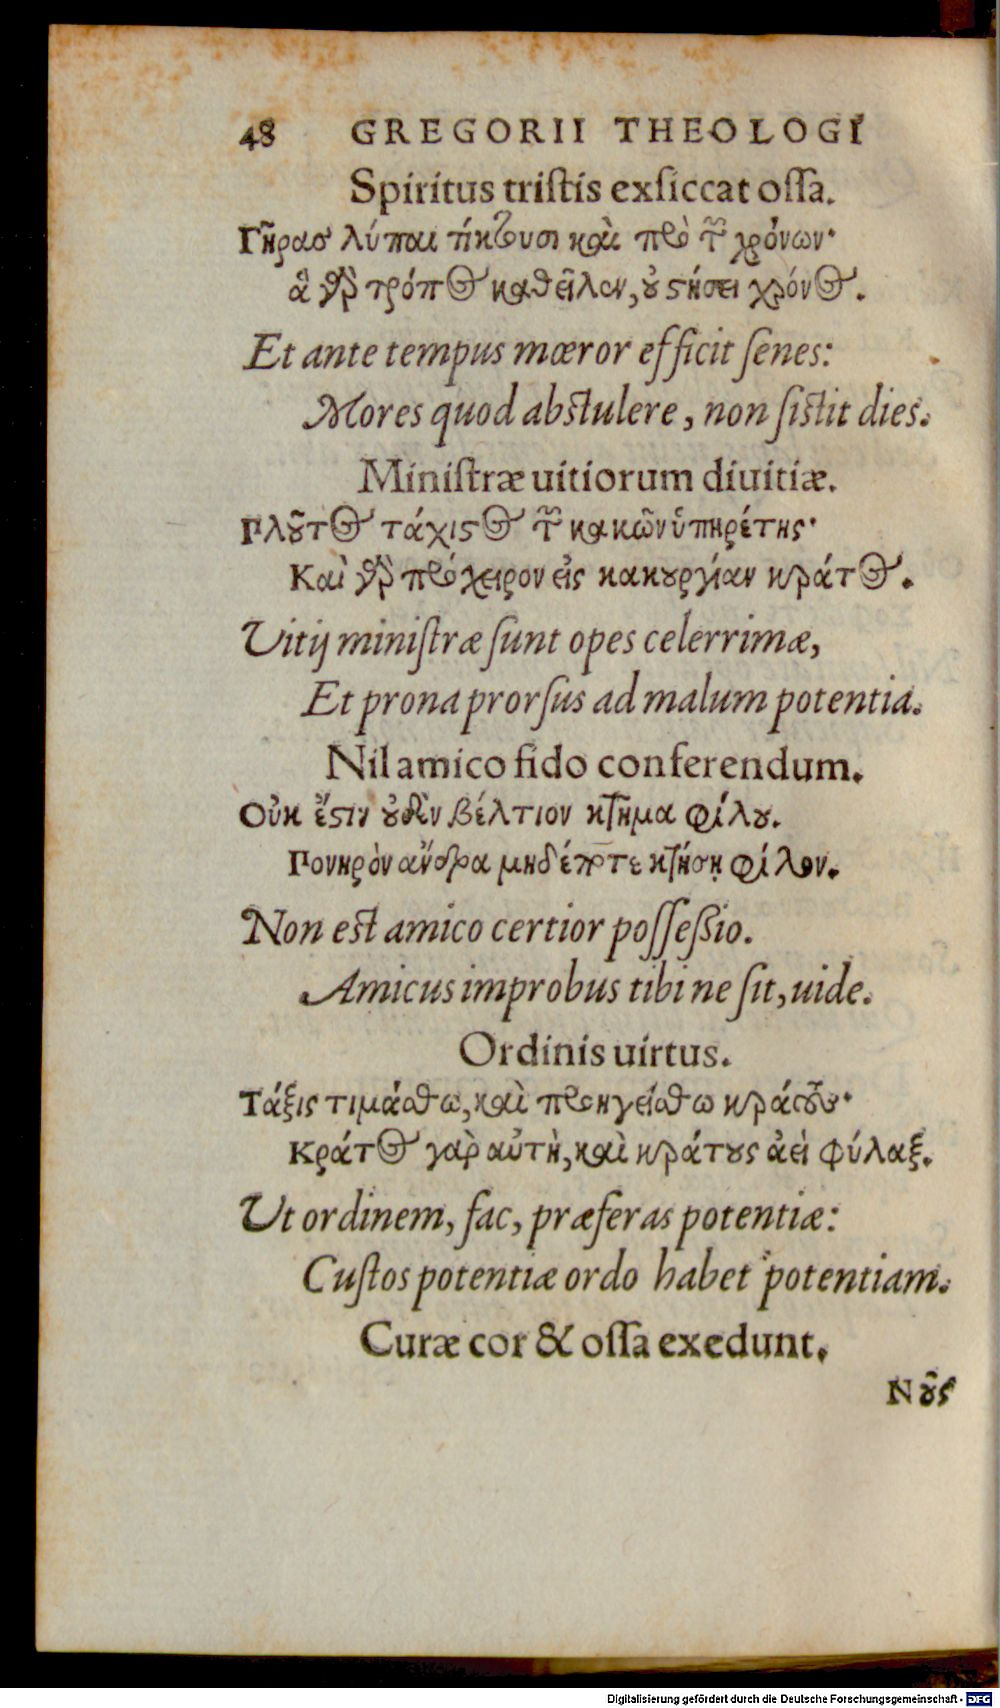 48 GREGORII THEOLOGI
Spiritus tristis exsiccat ossa.
Γῆρας λύπαι τίκτουσι καὶ πρὸ τῶν χρόνων·
ἃ γὰρ τρόπος καθεῖλεν, οὐ στήσει χρόνος.
Et ante tempus mœror efficit senes:
Mores quod abstulere, non sistit dies.
Ministræ uitiorum diuitiæ.
Πλοῦτος τάχιστος τῶν κακῶν ὑπηρέτης·
Καὶ γὰρ πρόχειρον εἰς κακουργίαν κράτος.
Vitij ministræ sunt opes celerrimæ,
Et prona prorsus ad malum potentia.
Nil amico fido conferendum.
Οὐκ ἔστιν οὐδὲν βέλτιον κτῆμα φίλου.
Πονηρὸν ἄνδρα μηδέποτε κτήσῃ φίλον.
Non est amico certior possessio.
Amicus improbus tibi ne sit, uide.
Ordinis uirtus.
Τάξις τιμάσθω, καὶ προηγείσθω κράτους·
Κράτος γὰρ αὐτὴ, καὶ κράτους ἀεὶ φύλαξ.
Vt ordinem, fac, præferas potentiæ:
Custos potentiæ ordo habet potentiam.
Curæ cor & ossa exedunt.
Νοῦς
Digitalisierung gefördert durch die Deutsche Forschungsgemeinschaft - DFG